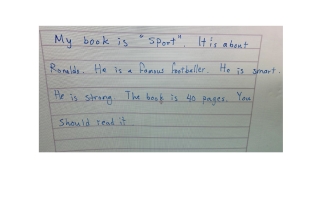 My book is "Sport". It is about
Ronaldo. He is a famous footballer. He is smart.
He is strong. The book is 40 pages. You
should read it